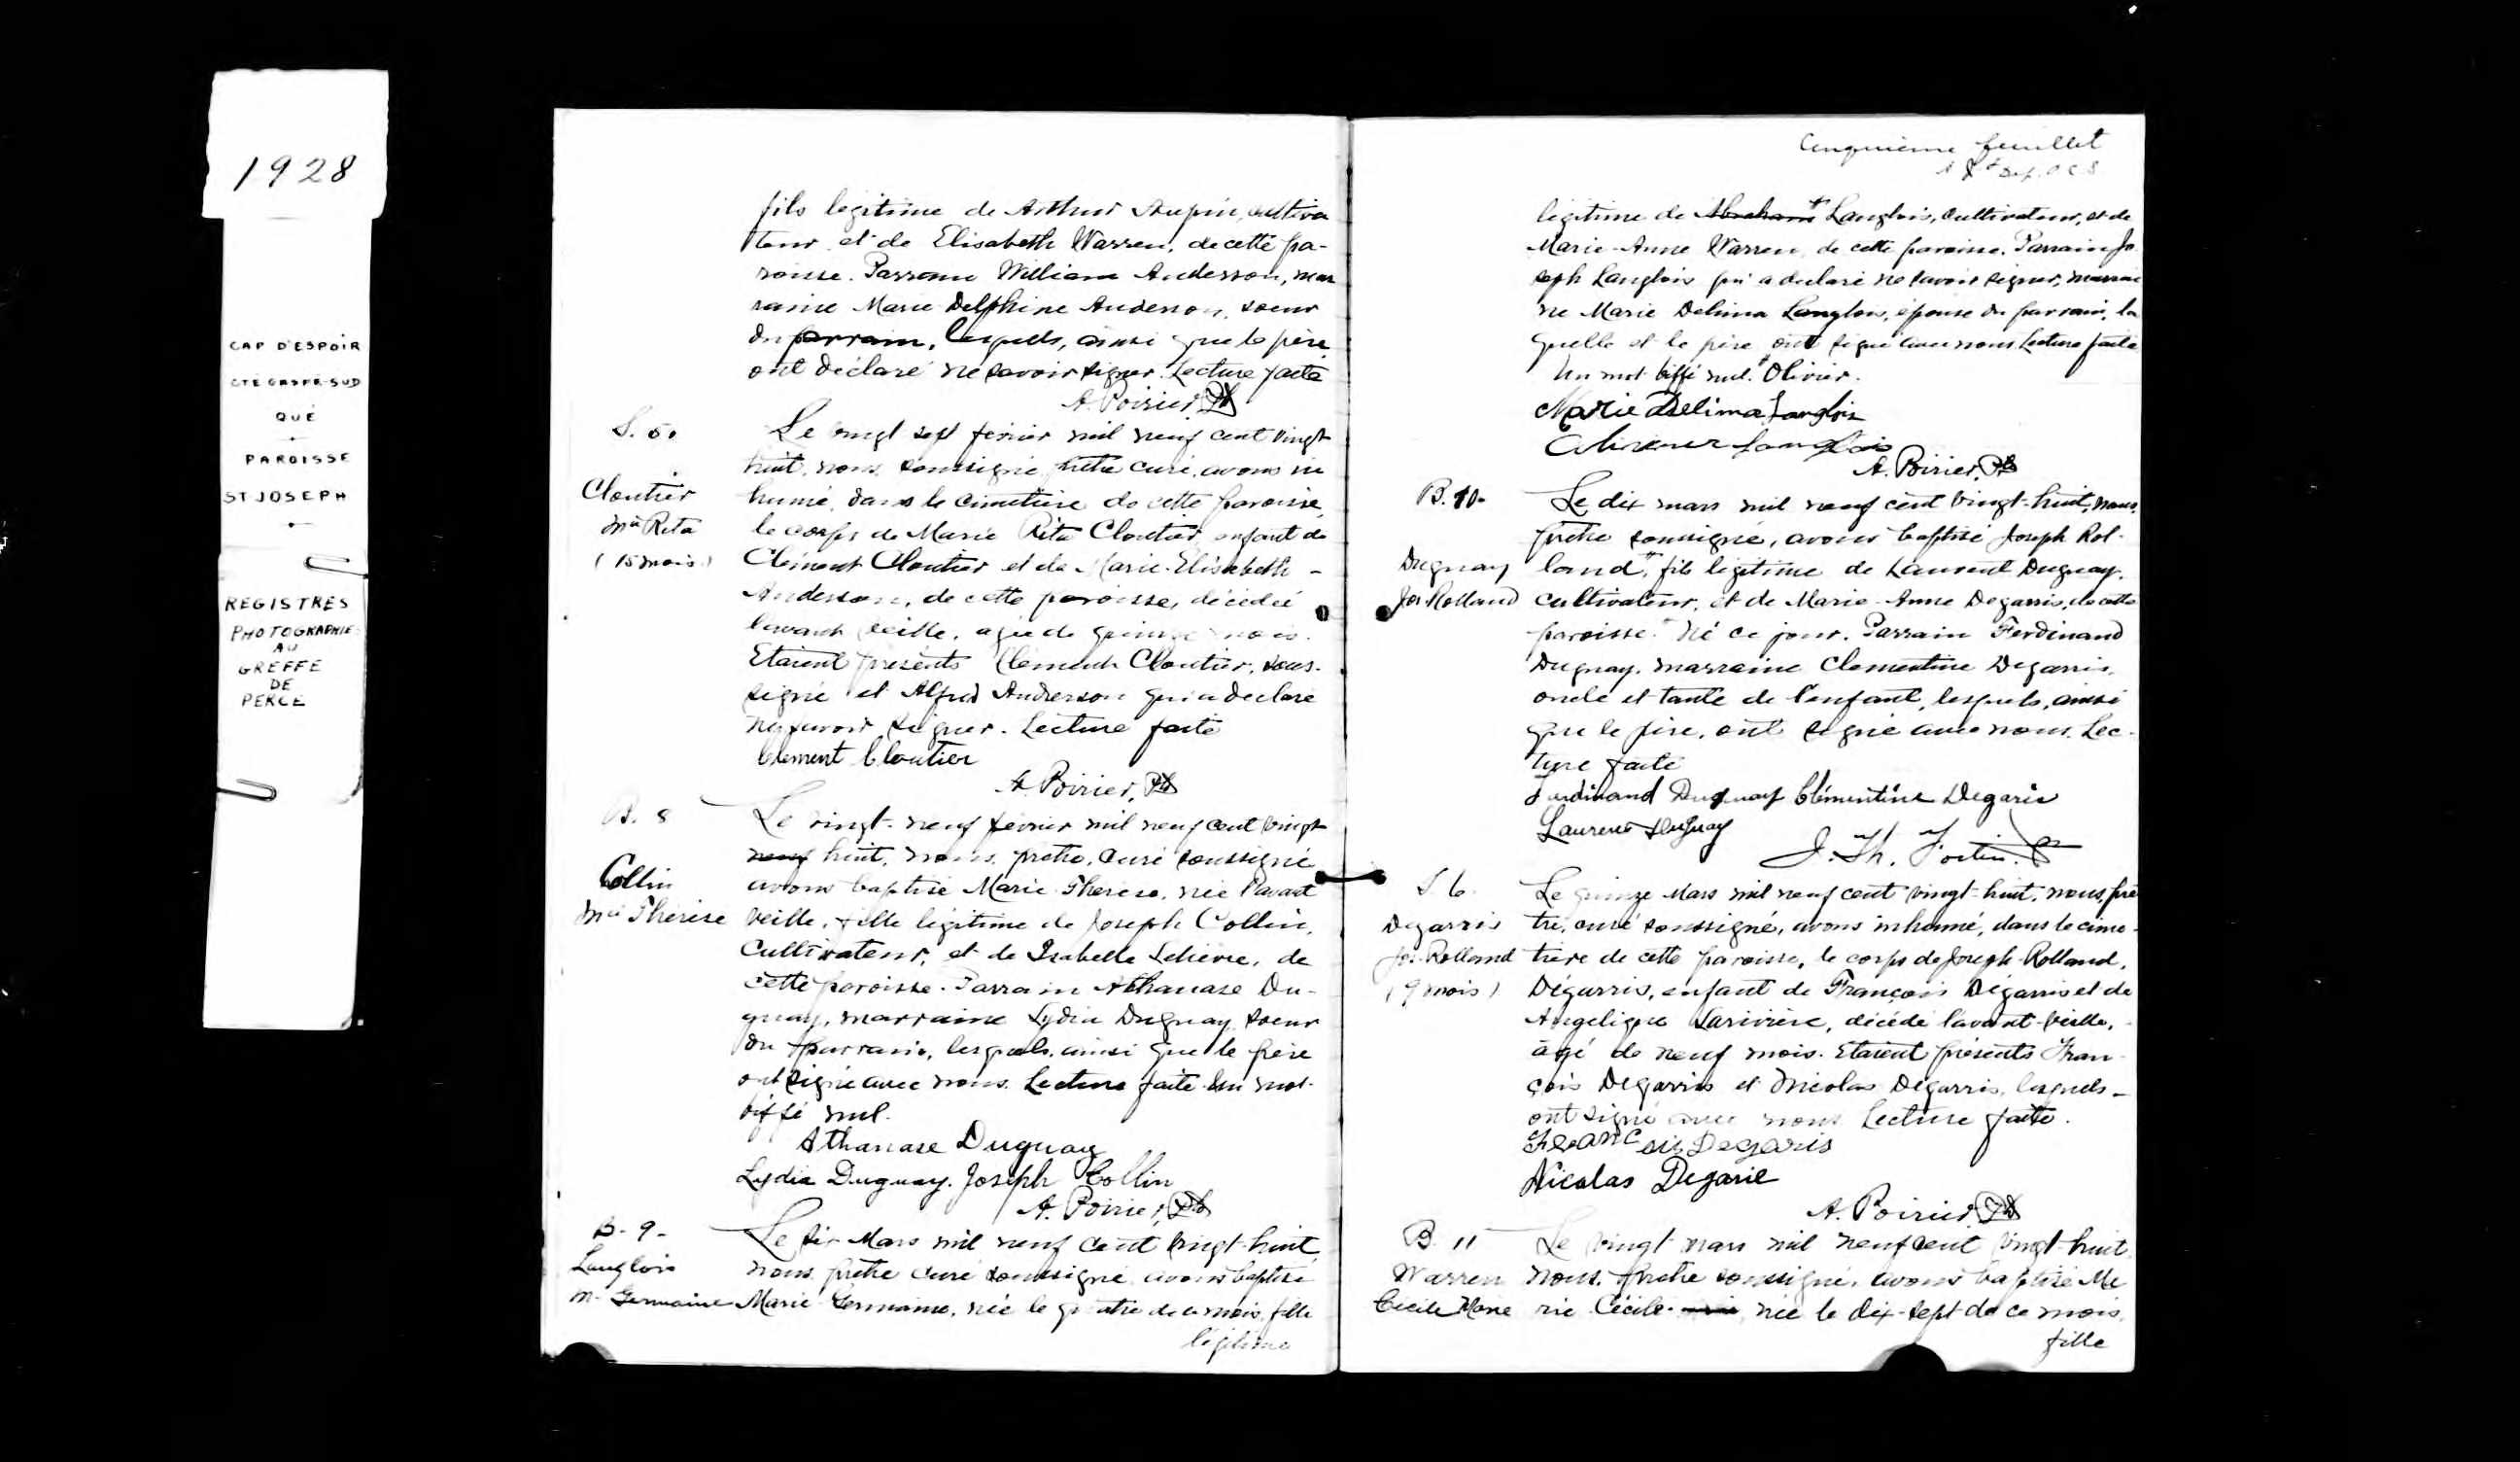 1928
CAP D'ESPOIR
CTÉ GASPÉ-SUD
QUÉ
PAROISSE
ST JOSEPH
REGISTRES
PHOTOGRAPHIÉS
AU
GREFFE
DE
PERCÉ
fils légitime de Arthur Aupin, cultiva
teur et de Elisabeth Warren, de cette pa-
roisse. Parrain William Anderson, mar
raine Marie Delphine Anderson, soeur
du parrain, lesquels, ainsi que le père
ont déclaré ne savoir signer. Lecture faite
A. Poirier, Ptre
S. 5.
Cloutier
Mie Rita
(15 mois)
Le vingt sept février mil neuf cent vingt
huit, nous soussigné prêtre curé, avons in
humé, dans le cimetière de cette paroisse,
le corps de Marie Rita Cloutier, enfant de
Clément Cloutier et de Marie-Elisabeth -
Anderson, de cette paroisse, décédée
l'avant veille, agée de quinze mois.
Etaient présents Clément Cloutier, sous-
signé et Alfred Anderson qui a déclaré
ne savoir signer. Lecture faite
Clement Cloutier
A. Poirier, Ptre
B. 8
Collin
Mie Thérèse
Le vingt-neuf février mil neuf cent vingt
neuf huit, nous, prêtre, curé soussigné
avons baptisé Marie Thérèse, née l'avant
veille, fille légitime de Joseph Collin,
cultivateur, et de Isabelle Lelièvre, de
cette paroisse. Parrain Athanase Du-
guay, marraine Lydia Duguay soeur
du parrain, lesquels, ainsi que le père
ont signé avec nous. Lecture faite. Un mot
biffé nul.
Athanase Duguay
Lydia Duguay. Joseph Collin
A. Poirier, Ptre
B-9-
Langlois
M- Germaine
Le six Mars mil neuf cent vingt-huit
nous prêtre curé soussigné avons baptisé
Marie Germaine, née le quatre de ce mois, fille
légitime
Cinquième feuillet
légitime de Abraham Langlois, cultivateur, et de
Marie-Anne Warren, de cette paroisse. Parrain Jo
seph Langlois qui a déclaré ne savoir signer, marrai
ne Marie Delima Langlois, épouse du parrain, la
quelle et le père ont signé avec nous. Lecture faite
Un mot biffé nul. Olivier.
Marie Delima Langlois
Langlois
A. Poirier, Ptre
B. 10-
Duguay
Jos. Rolland
Le dix mars mil neuf cent vingt-huit, nous,
prêtre soussigné, avons baptisé Joseph Rol-
land, fils légitime de Laurent Duguay,
cultivateur, et de Marie-Anne Degarris, de cette
paroisse. Né ce jour. Parrain Ferdinand
Duguay, marraine Clementine Degarris,
oncle et tante de l'enfant, lesquels, ainsi
que le père, ont signé avec nous. Lec-
ture faite
Ferdinand Duguay Clémentine Degaris
Laurent Duguay
J. Th. Fortin, Ptre
S. 6.
Degarris
Jos. Rolland
(9 mois)
Le quinze Mars mil neuf cent vingt-huit, nous, prê
tre, curé soussigné, avons inhumé, dans le cime-
tière de cette paroisse, le corps de Joseph-Rolland,
Dégarris, enfant de François Dégarris et de
Angelique Larivière, décédé l'avant-veille,
âgé de neuf mois. Etaient présents Fran-
çois Degarris et Nicolas Dégarris, lesquels -
ont signé avec nous. Lecture faite.
Francois Degaris
Nicolas Degarie
A. Poirier, Ptre
B. 11
Warren
Cécile Marie
Le vingt mars mil neuf cent vingt-huit,
nous, prêtre soussigné, avons baptisé Ma
rie Cécile née le dix-sept de ce mois,
fille